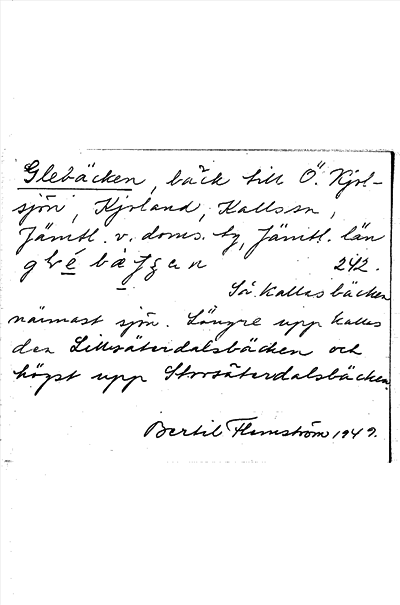 Glebäcken, bäck till Ö. Kjol-
sjön, Kjoland, Kallssn,
Jämtl. v. doms. tg, Jämtl. län
242.
Så kallas bäcken
närmast sjön. Längre upp kallas
den Lillsäterdalsbäcken och
högst upp Storsäterdalsbäcken.
Bertil Flemström 1949.